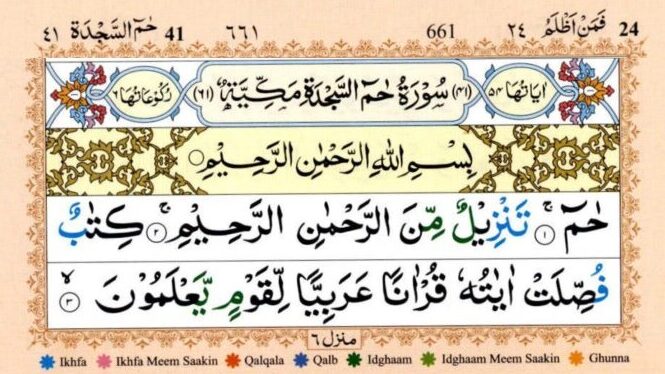 24 فَمَنْ اَظْلَمُ ٢٤ 661 ٦٦١ 41 حٰمٓ السَّجْدَة ٤١
اٰيَاتُهَا ٥٤ (٤١) سُوْرَةُ حٰمٓ السَّجْدَةِ مَكِّيَّةٌ (٦١) رُكُوْعَاتُهَا ٦
بِسْمِ اللّٰهِ الرَّحْمٰنِ الرَّحِيْمِ
حٰمٓ ۚ ١ تَنْزِيْلٌ مِّنَ الرَّحْمٰنِ الرَّحِيْمِ ۚ ٢ كِتٰبٌ
فُصِّلَتْ اٰيٰتُهٗ قُرْاٰنًا عَرَبِيًّا لِّقَوْمٍ يَّعْلَمُوْنَ ۙ ٣
منزل ٦
Ikhfa Ikhfa Meem Saakin Qalqala Qalb Idghaam Idghaam Meem Saakin Ghunna